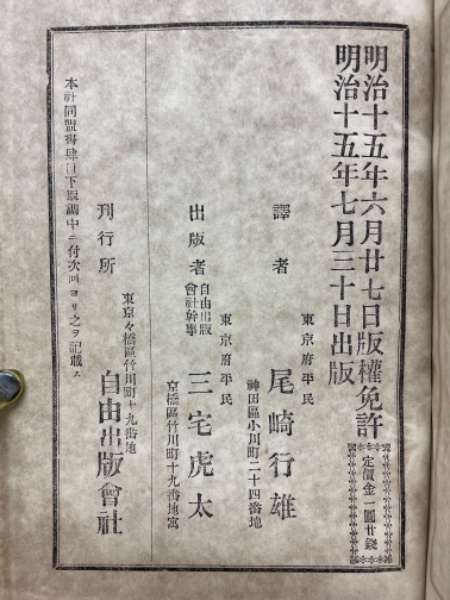 明治十五年六月廿七日版權免許
明治十五年七月三十日出版
定價金一圓廿錢
譯者
東京府平民
尾崎行雄
神田區小川町二十四番地
出版者
自由出版
會社幹事
東京府平民
三宅虎太
京橋區竹川町十九番地寓
刊行所
東京々橋區竹川町十九番地
自由出版會社
本社同盟書肆目下取調中ニ付次回ヨリ之ヲ記載ス